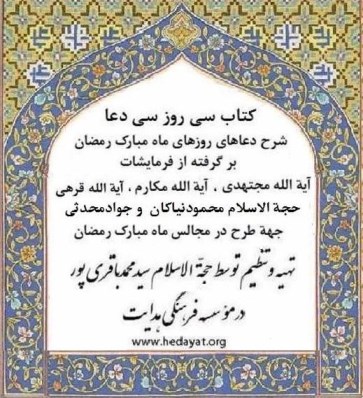 کتاب سی روز سی دعا
شرح دعاهای روزهای ماه مبارک رمضان
بر گرفته از فرمایشات
آیة الله مجتهدی ، آیة الله مکارم ، آیة الله قرهی
حجة الاسلام محمودنیاکان و جوادمحدثی
جهة طرح در مجالس ماه مبارک رمضان
تهیه و تنظیم توسط حجة الاسلام سید محمد باقری پور
در مؤسسه فرهنگی هدایت
www.hedayat.org